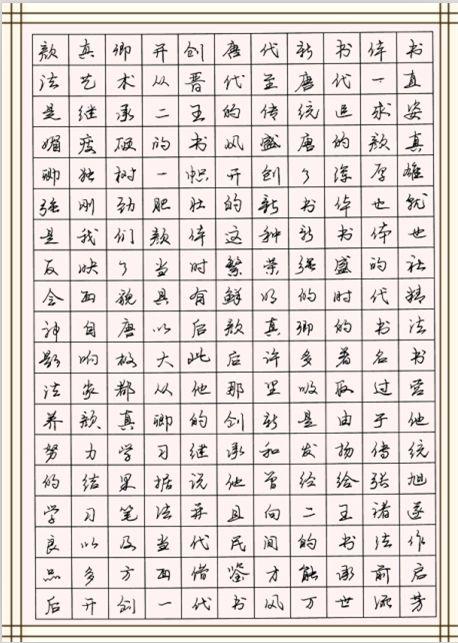 颜真卿开创唐代新书体书
法艺术从晋代至唐代一直
是继承二王的传统追求姿
媚瘦硬的书风盛唐的颜真
卿独树一帜开创了深厚雄
强刚劲肥壮的新书体也就
是我们颜体这种新书体也
反映了当时繁荣强盛的社
会面貌具有鲜明的时代精
神自唐以后颜真卿的书法
影响极大此后许多著名书
法家都从他那里吸取过营
养颜真卿的创新是由于他
努力学习继承和发扬传统
的结果据说他曾经给张旭
学习笔法并且向二王诸遂
良以及当代民间的书法作
品多方面借鉴才能承前启
后开创一代书风万世流芳